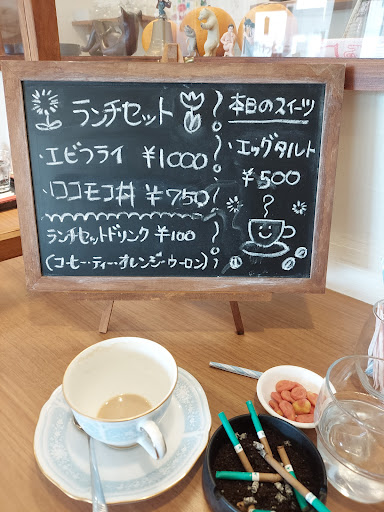 ランチセット
・エビフライ ¥1000
・ロコモコ丼 ¥750
ランチセットドリンク ¥100
(コーヒー・ティー・オレンジ・ウーロン)
本日のスイーツ
・エッグタルト
¥500